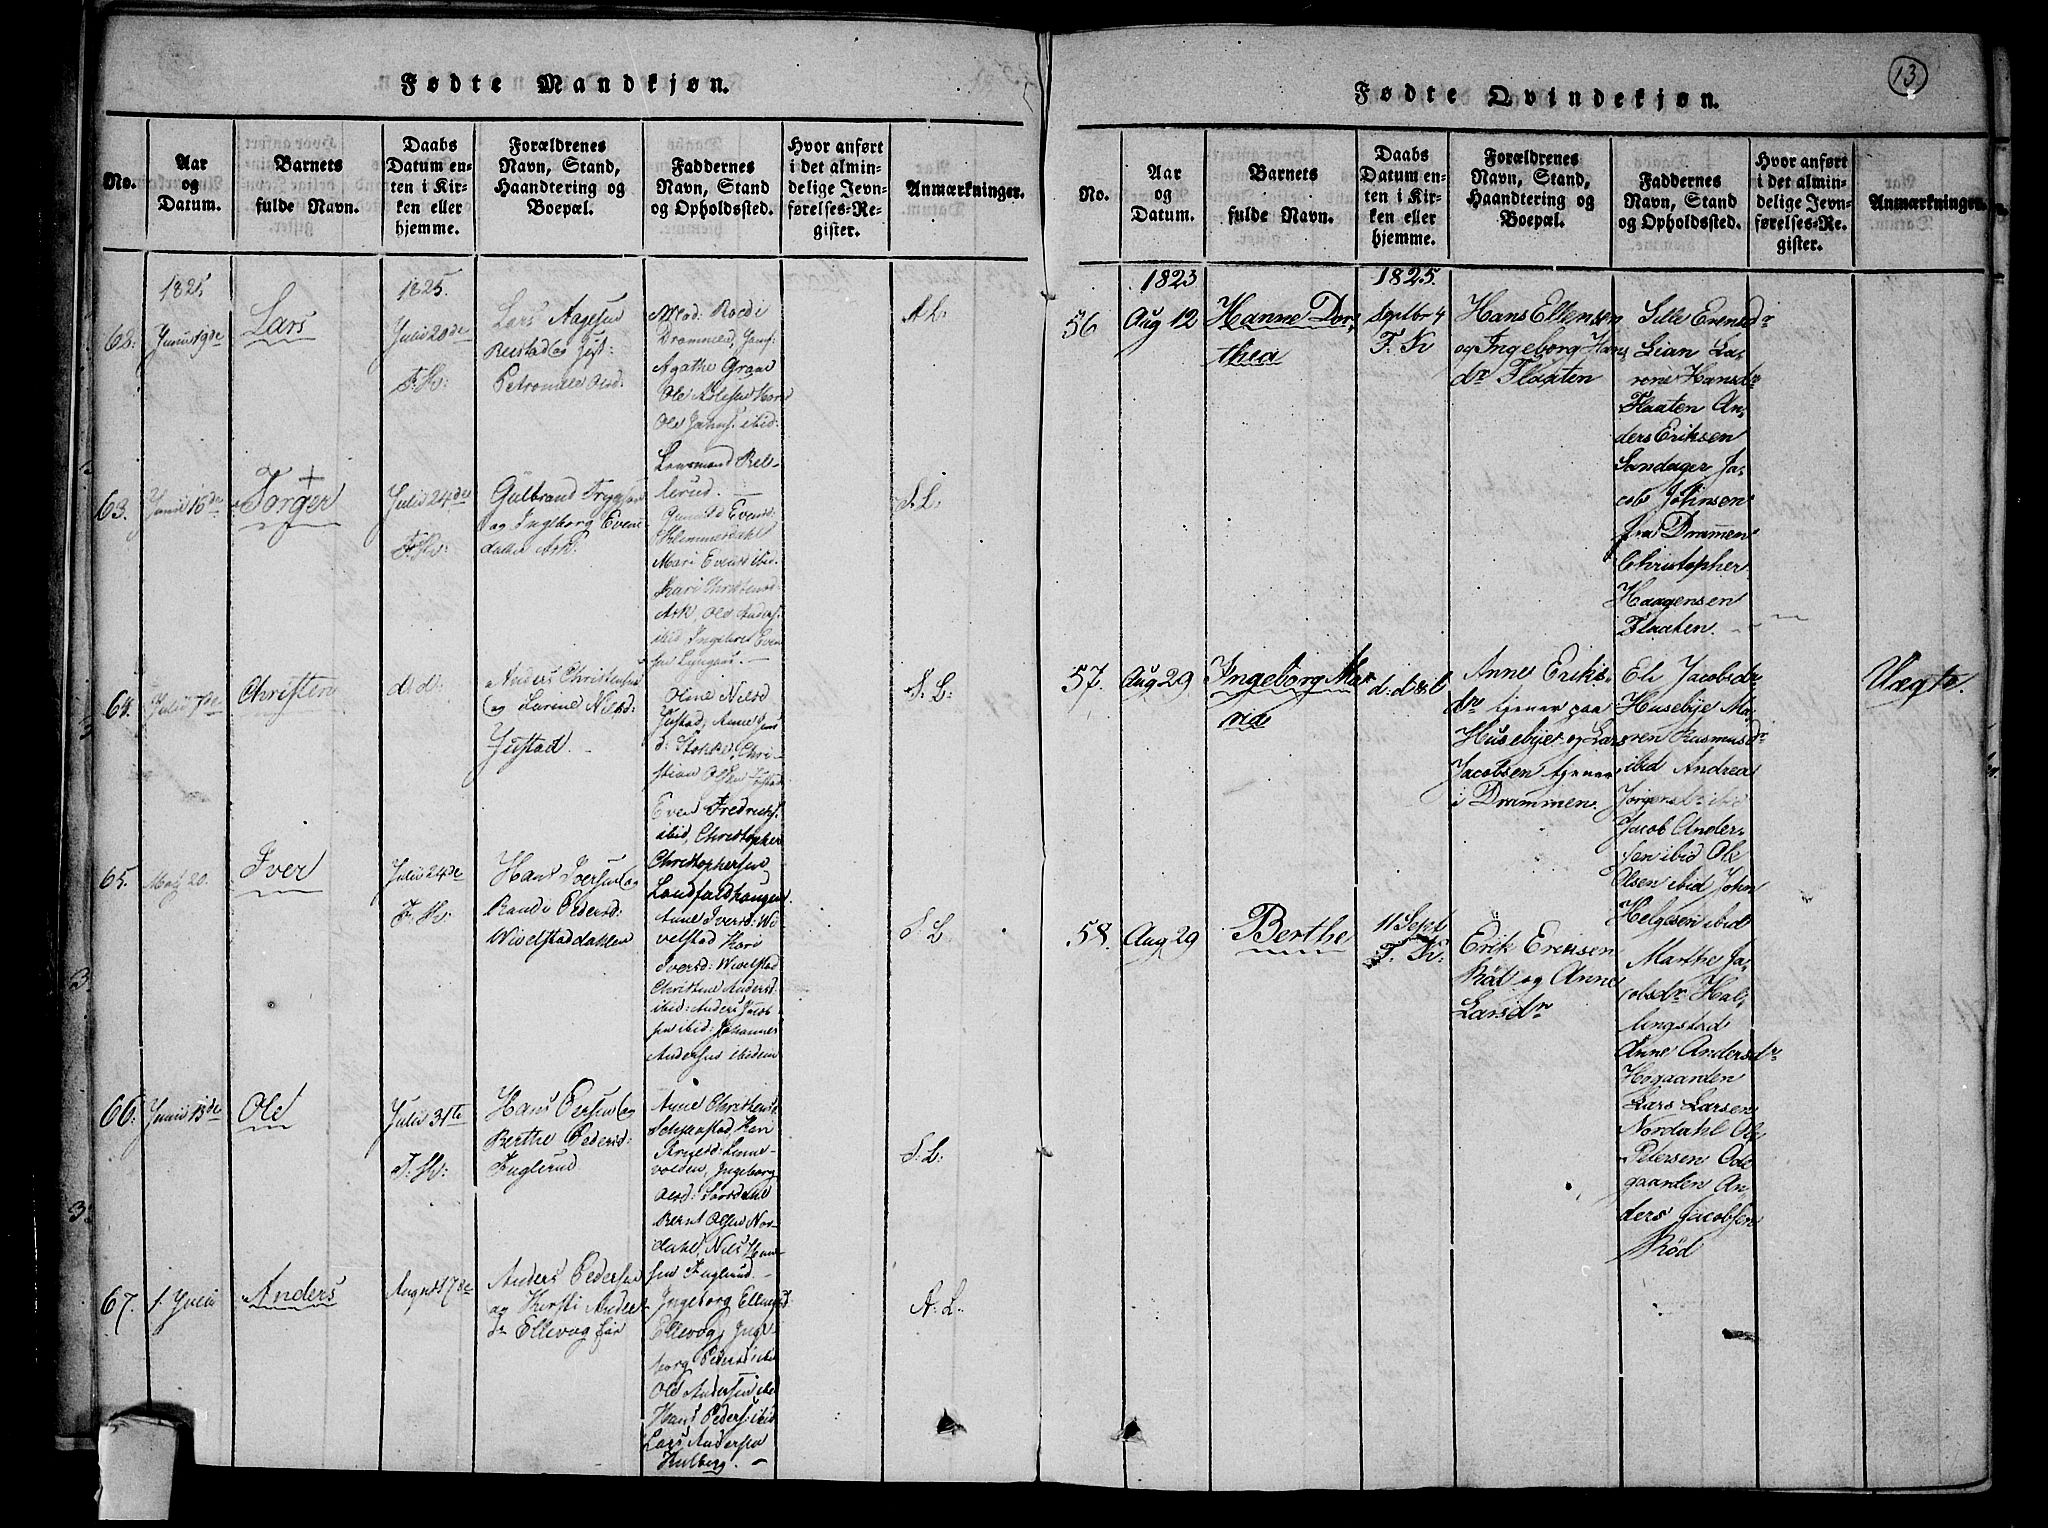 Fødte Mandkjøn.
No.
Aar
og
Datum.
Barnets
fulde Navn.
Daabs
Datum en-
ten i Kir-
ken eller
hjemme.
Forældrenes
Navn, Stand,
Haandtering og
Boepæl.
Faddernes
Navn, Stand
og Opholdssted.
Hvor anført
i det almin-
delige Jevn-
førelses-Re-
gister.
Anmærkninger.
1825
1825.
62.
Junii 19de
Lars
Julii 20de
F: K:
Lars Aagesen
og
Petronille Olsd:
Drammen,
Agathe
Ole
Ole ibid:
A. L.
63.
Junii 15de
Torger
Julii 24de
F. K:
Gulbrand
og Ingeborg Evens
datter Ask:
Lensmand
Gunild Evensd:
Mari Evensd ibid.
Kari Christensd
Ask, Ole Anders:
ibid, Ingebret Even
sen
S. L:
64.
Julii 7de
Christen
d: d:
Anders Christensen
og Karine Nilsd:
Justad.
Oline Nilsd
Justad, Anne
d: Stokke, Chri-
stian Olsen Justad
Even Fredriks:
ibid, Christopher
Christophersen
Landfaldhaugen
S. L:
65.
May 20.
Iver
Julii 24de
F. K:
Hans Iversen og
Randi Pedersd:
Wivelstaddahlen
Anne Iversd: Wi-
velstad Kari
Iversd: Wivelstad
Christine Andersd
ibid: Anders Jacob
sen ibid: Johannes
Andersen ibidem
S. L.
66.
Junii 13de
Ole
Julii 31te
F: K:
Hans Persen og
Berthe Pedersd:
Fuglerud
Anne Christensd
Kari
volden, Ingeborg
Olsd:
Bernt Olsen Nor-
dahl, Nils Han-
sen Fuglerud. —
S: L:
67.
1. Julii
Anders
August 7de
Anders Pedersen
og Kirsti Anders
dr Ellevog
Ingeborg Ellingsd:
Ellevog, Inge-
borg Pedersd ibid
Ole Andersen ibid
Hans Peders: ibid
Lars Andersen
Kulberg. —
A: L:
13
Fødte Qvindekjøn.
No.
Aar
og
Datum.
Barnets
fulde Navn.
Daabs
Datum en-
ten i Kir-
ken eller
hjemme.
Forældrenes
Navn, Stand,
Haandtering og
Boepæl.
Faddernes
Navn, Stand
og Opholdssted.
Hvor anført
i det almin-
delige Jevn-
førelses-Re-
gister.
Anmærkninger.
1823
1825.
56
Aug 12
Hanne Dor,
thea
Septbr 4
F. K
Hans Ellensen
og Ingeborg Hans
dr Flaaten
Sille Evensdr
Lian La,
rone Hansdr
Flaaten An,
ders Eriksen
Sandager Ja,
cob Johnsen
fra Drammen
Christopher
Haagensen
Flaaten.
57.
Aug 29
Ingeborg Ma,
rie
d: d: & l
Anne Eriks,
dr tjener paa
Husebye og Lars
Jacobsen tjener
i Drammen.
Eli Jacobsdr
Husebye Ma,
ren Rasmusdr
ibid Andrea
Jørgensdr ibid
Jacob Ander,
sen ibid Ole
Olsen ibid John
Helgesen ibid
Uægte.
58.
Aug 29
Berthe
11 Sept
F. K:
Erik Eriksen
Röd og Anne
Larsdr
Marthe Ja,
cobsdr Hal,
lingstad
Anne Andersdr
Hogaarden
Lars Larsen
Nordahl Ole
Petersen Øde
gaarden An,
ders Jacobsen
Röd
3.
3.